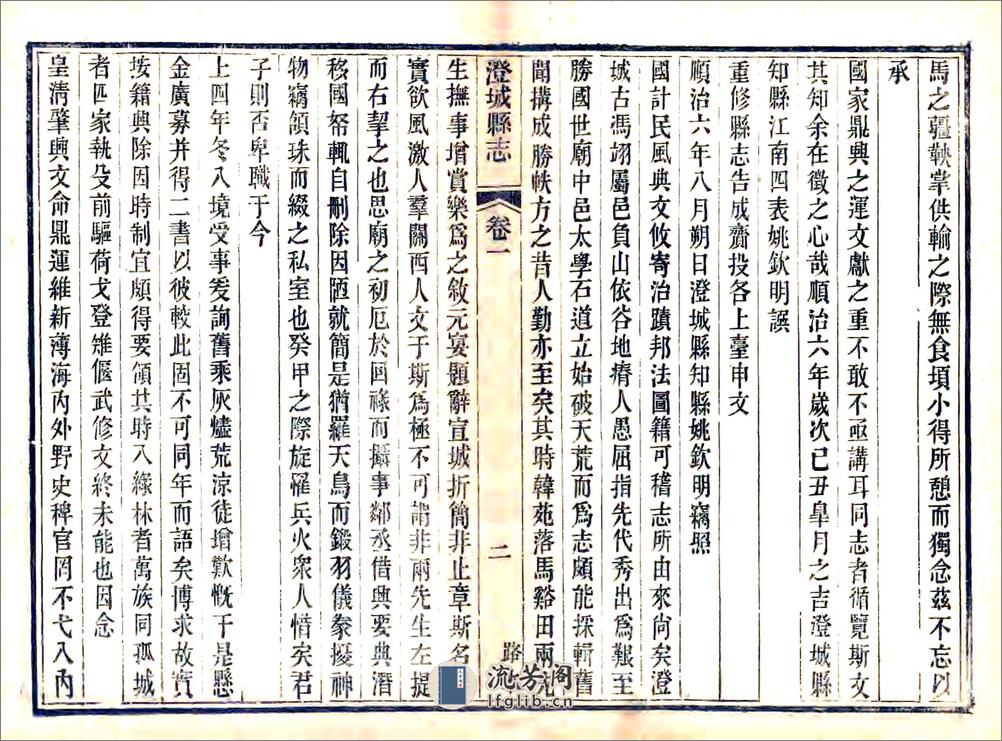 馬之疆鞅掌供輸之際無食頃小得所憩而獨念茲不忘以
承
國家鼎興之運文獻之重不敢不亟講耳同志者循覽斯文
其知余在徵之心哉順治六年歲次己丑皐月之吉澄城縣
知縣江南四表姚欽明誤
重修縣志告成齎投各上臺申文
順治六年八月朔日澄城縣知縣姚欽明竊照
國計民風典文攸寄治蹟邦法圖籍可稽志所由來尚矣澄
城古馮翊屬邑負山依谷地瘠人愚屈指先代秀出為艱至
勝國世廟中邑太學石道立始破天荒而為志頗能採輯舊
聞搆成勝帙方之昔人勤亦至矣其時韓苑落馬谿田兩先
澄城縣志
卷一
二
路
生撫事增賞樂為之敘元宴題辭宣城折簡非止章斯名
實欲風激人羣關西人文于斯為極不可謂非兩先生左提
而右挈之也思廟之初厄於回祿而攝事鄰丞借興要典潛
移國帑輒自刪除因陋就簡是猶羅天鳥而鍛羽儀豢擾神
物竊頷珠而綴之私室也癸甲之際旋罹兵火衆人惜矣君
子則否卑職于今
上四年冬入境受事爰詢舊乘灰燼荒涼徒增歎慨于是懸
金廣募并得二書以彼較此固不可同年而語矣博求故實
按籍興除因時制宜頗得要領其時入綠林者萬族同孤城
者四家執殳前驅荷戈登雉偃武修文終未能也因念
皇清肇興文命鼎運維新薄海內外野史稗官罔不弋入內
流芳閣
lfglib.cn